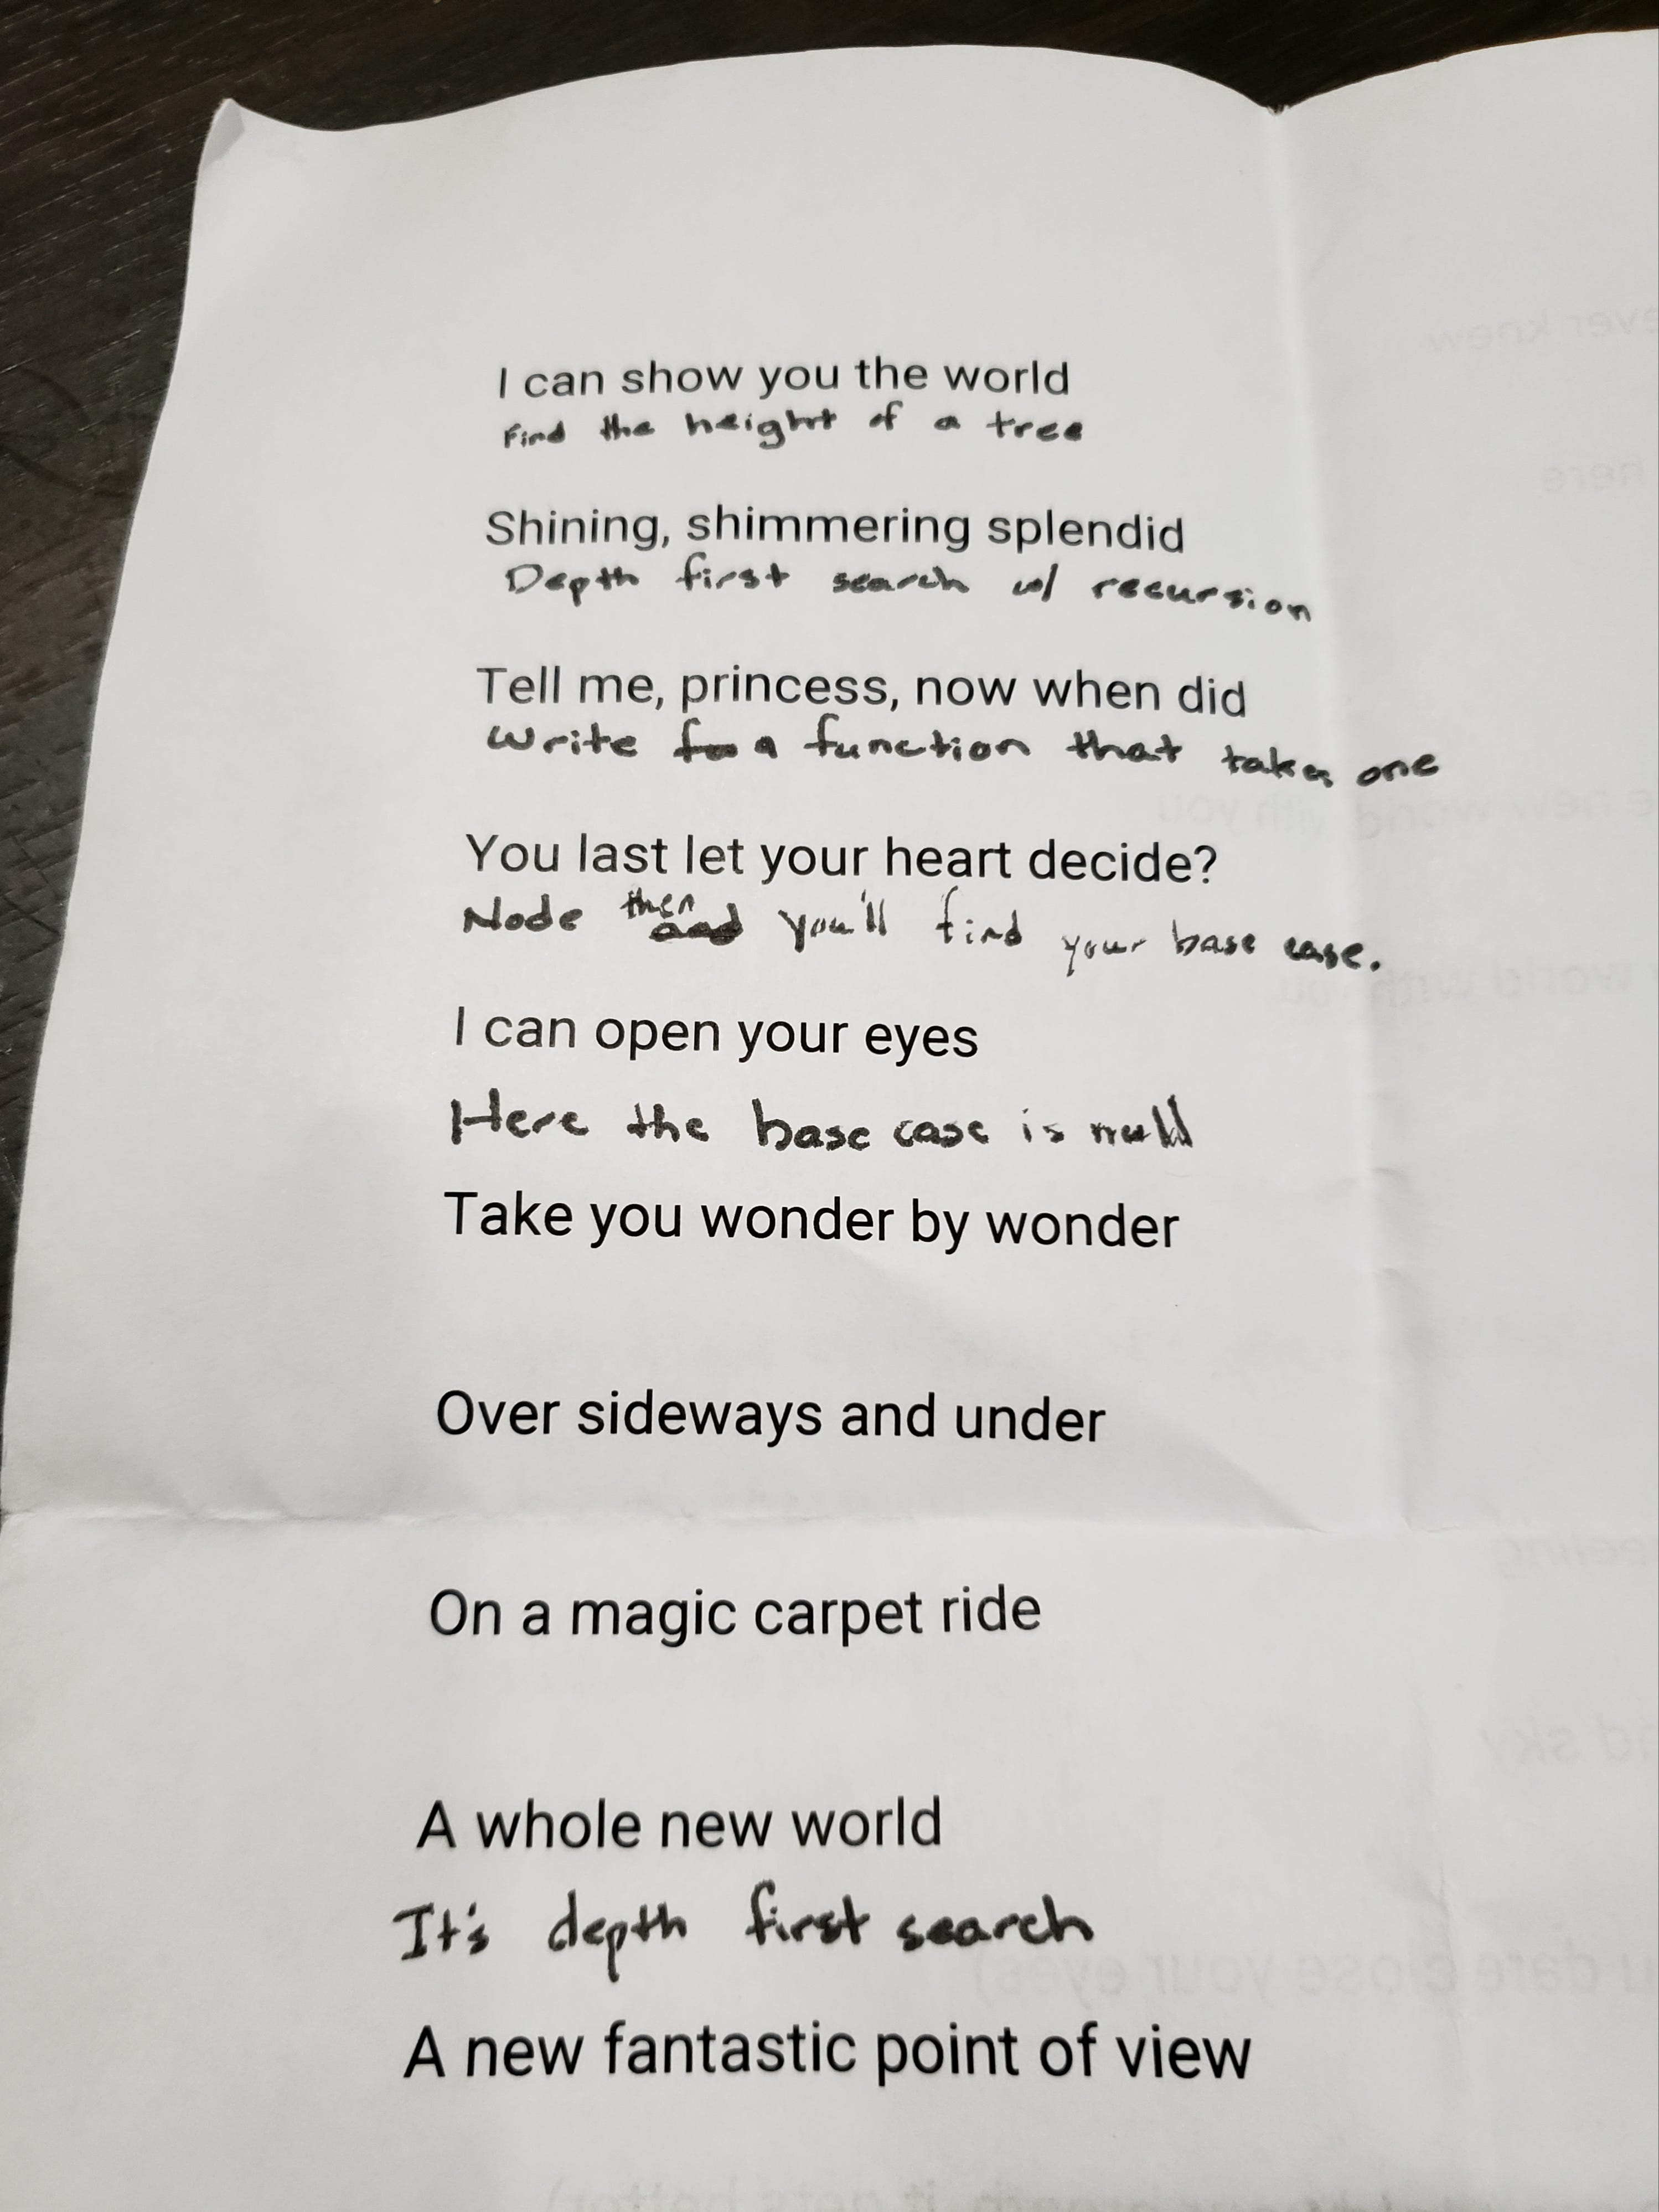 I can show you the world
Find the height of a tree
Shining, shimmering splendid
Depth first search w/ recursion
Tell me, princess, now when did
Write a function that takes one
You last let your heart decide?
Node then you'll find your base case.
I can open your eyes
Here the base case is null
Take you wonder by wonder
Over sideways and under
On a magic carpet ride
A whole new world
It's depth first search
A new fantastic point of view